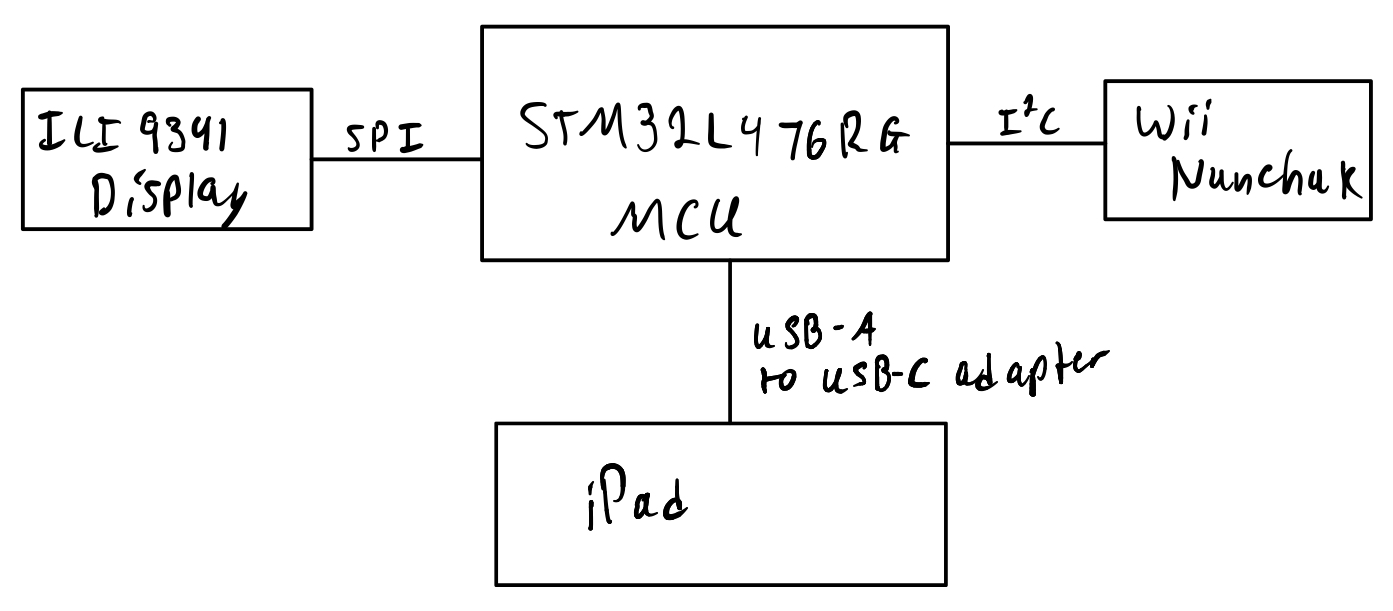 ILI 9341
Display
SPI
STM32L476RG
MCU
I²C
Wii
Nunchuk
USB-A
to USB-C adapter
iPad